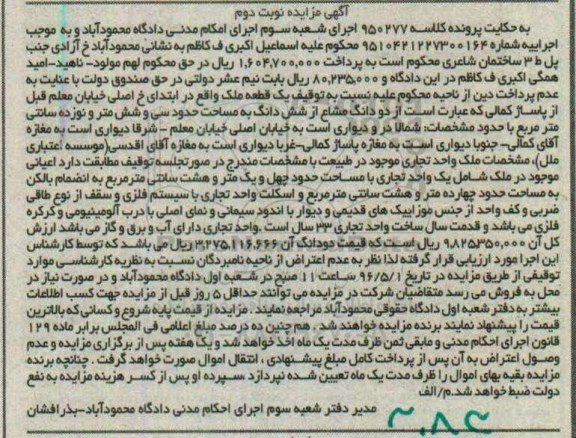 آگهی مزایده نوبت دوم
به حکایت پرونده کلاسه ۹۵۰۲۷۷ اجرای شعبه سوم اجرای امکام مدنی دادگاه محمودآباد و به موجب
اجراییه شماره ۹۵۱۰۴۲۱۲۲۷۳۰۰۱۶۴ محکوم علیه اسماعیل اکبری ف کاظم به نشانی محمودآباد خ آزادی جنب
پل ط ۳ ساختمان شاعری محکوم است به پرداخت ۱,۶۰۴,۷۰۰,۰۰۰ ریال در حق محکوم لهم مولود- ناهید-امید
همگی اکبری ف کاظم در این دادگاه و ۸۰,۲۳۵,۰۰۰ ریال بابت نیم عشر دولتی در حق صندوق دولت با عنایت به
عدم پرداخت دین از ناحیه محکوم علیه نسبت به توقیف یک قطعه ملک واقع در ابتدای خ اصلی خیابان معلم قبل
از پاساژ کمالی که عبارت است از دو دانگ مشاع از شش دانگ به مساحت حدود سی و شش متر و نوزده سانتی
متر مربع با حدود مشخصات: شمالا در و دیواری است به خیابان اصلی خیابان معلم - شرقا دیواری است به مغازه
آقای کمالی- جنوبا دیواری است به مغازه پاساژ کمالی-غربا دیواری است به مغازه آقای اقدسی(موسسه اعتباری
ملل)، مشخصات ملک واحد تجاری موجود در طبیعت با مشخصات مندرج در صورتجلسه توقیف مطابقت دارد اعیانی
موجود در ملک شامل یک واحد تجاری با مساحت حدود چهل و یک متر و هشت سانتی متر مربع به انضمام بالکن
به مساحت حدود چهارده متر و هشت سانتی مترمربع و اسکلت واحد تجاری با سیستم فلزی و سقف از نوع طاقی
ضربی و کف واحد از جنس موزاییک های قدیمی و دیوار با اندود سیمانی و نمای اصلی با درب آلومینیومی و کرکره
فلزی می باشد و قدمت سال ساخت واحد تجاری ۳۳ سال است .واحد تجاری دارای آب و برق و گاز می باشد ارزش
کل آن ۹,۸۲۵۳۵۰,۰۰۰ ریال است که قیمت دودانگ آن ۳,۲۷۵,۱۱۶,۶۶۶ ریال می باشد که توسط کارشناس
این اجرا مورد ارزیابی قرار گرفته لذا نظر به عدم اعتراض از ناحیه نامبردگان نسبت به نظریه کارشناسی موارد
توقیفی از طریق مزایده در تاریخ ۹۶/۵/۱ ساعت ۱۱ صبح در شعبه اول دادگاه محمودآباد و در صورت نیاز در
محل به فروش می رسد متقاضیان شرکت در مزایده می توانند حداقل ۵ روز قبل از مزایده جهت کسب اطلاعات
بیشتر به دفتر شعبه اول دادگاه حقوقی محمودآباد مراجعه نمایند . مزایده از قیمت پایه شروع و کسانی که بالاترین
قیمت را پیشنهاد نمایند برنده مزایده خواهند شد . هم چنین ده درصد مبلغ اعلامی فی المجلس برابر ماده ۱۲۹
قانون اجرای احکام مدنی و مابقی ثمن ظرف مدت یک ماه اخذ خواهد شد و یک هفته پس از برگزاری مزایده و عدم
وصول اعتراض به آن پس از پرداخت کامل مبلغ پیشنهادی ، انتقال اموال صورت خواهد گرفت . چنانچه برنده
مزایده بقیه بهای اموال را ظرف مدت یک ماه تعیین شده نپردازد .سپرده او پس از کسر هزینه مزایده به نفع
دولت ضبط خواهد شد.م/الف
مدیر دفتر شعبه سوم اجرای احکام مدنی دادگاه محمودآباد-بذرافشان